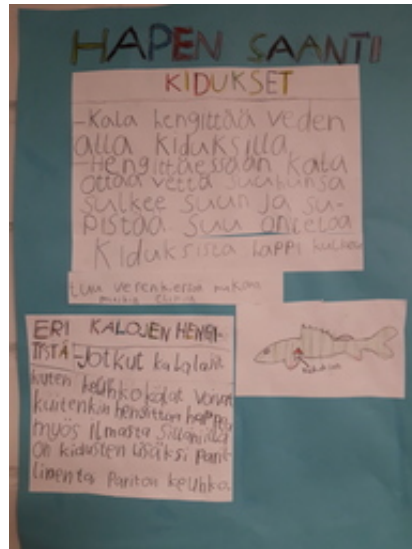 HAPEN SAANTI
KIDUKSET
-Kala hengittää veden
alla kiduksilla.
-Hengittäessään kala
ottaa vettä suuhunsa
sulkee suun ja su-
pistaa suu onteloa
Kiduksista happi kulkeu
tuu verenkierron mukana
muihin
ERI KALOJEN HENGI-
TYSTÄ -Jotkut kalalajit
kuten keuhkokalat voivat
kuitenkin hengittää happea
myös ilmasta Sillä niillä
on kidusten lisäksi paril-
linen tai pariton keuhko.